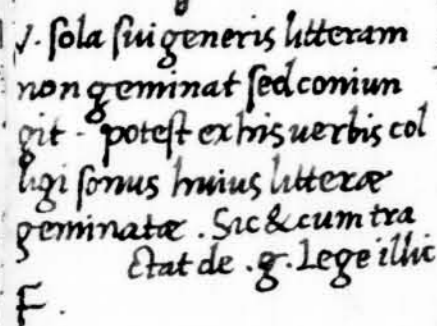 V. ſola ſui generis litteram
non geminat ſed coniun
git. poteſt ex his uerbis col
ligi ſonus huius litteræ
geminatæ. Sic & cum tra
ctat de .g. Lege illic
F.